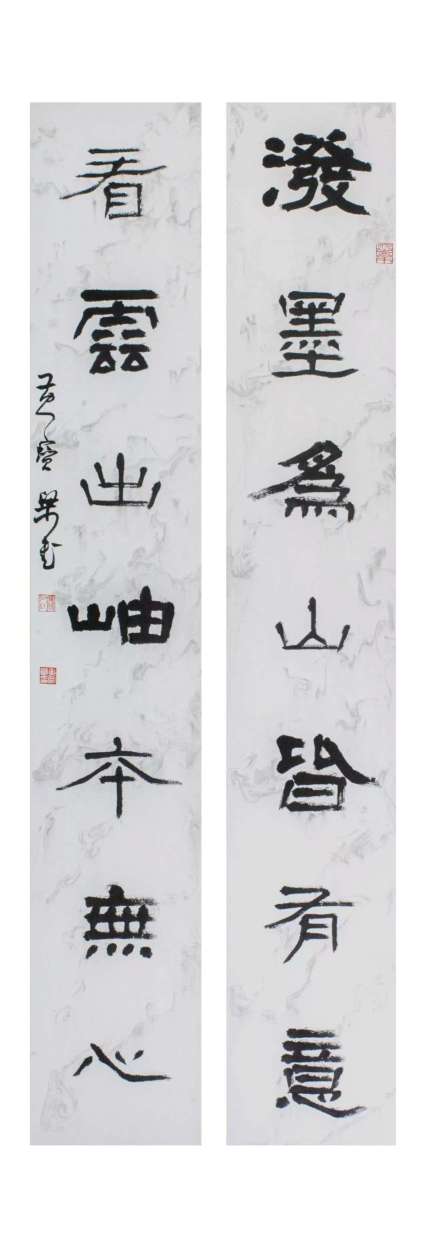 潑墨為山皆有意
看雲出岫本無心